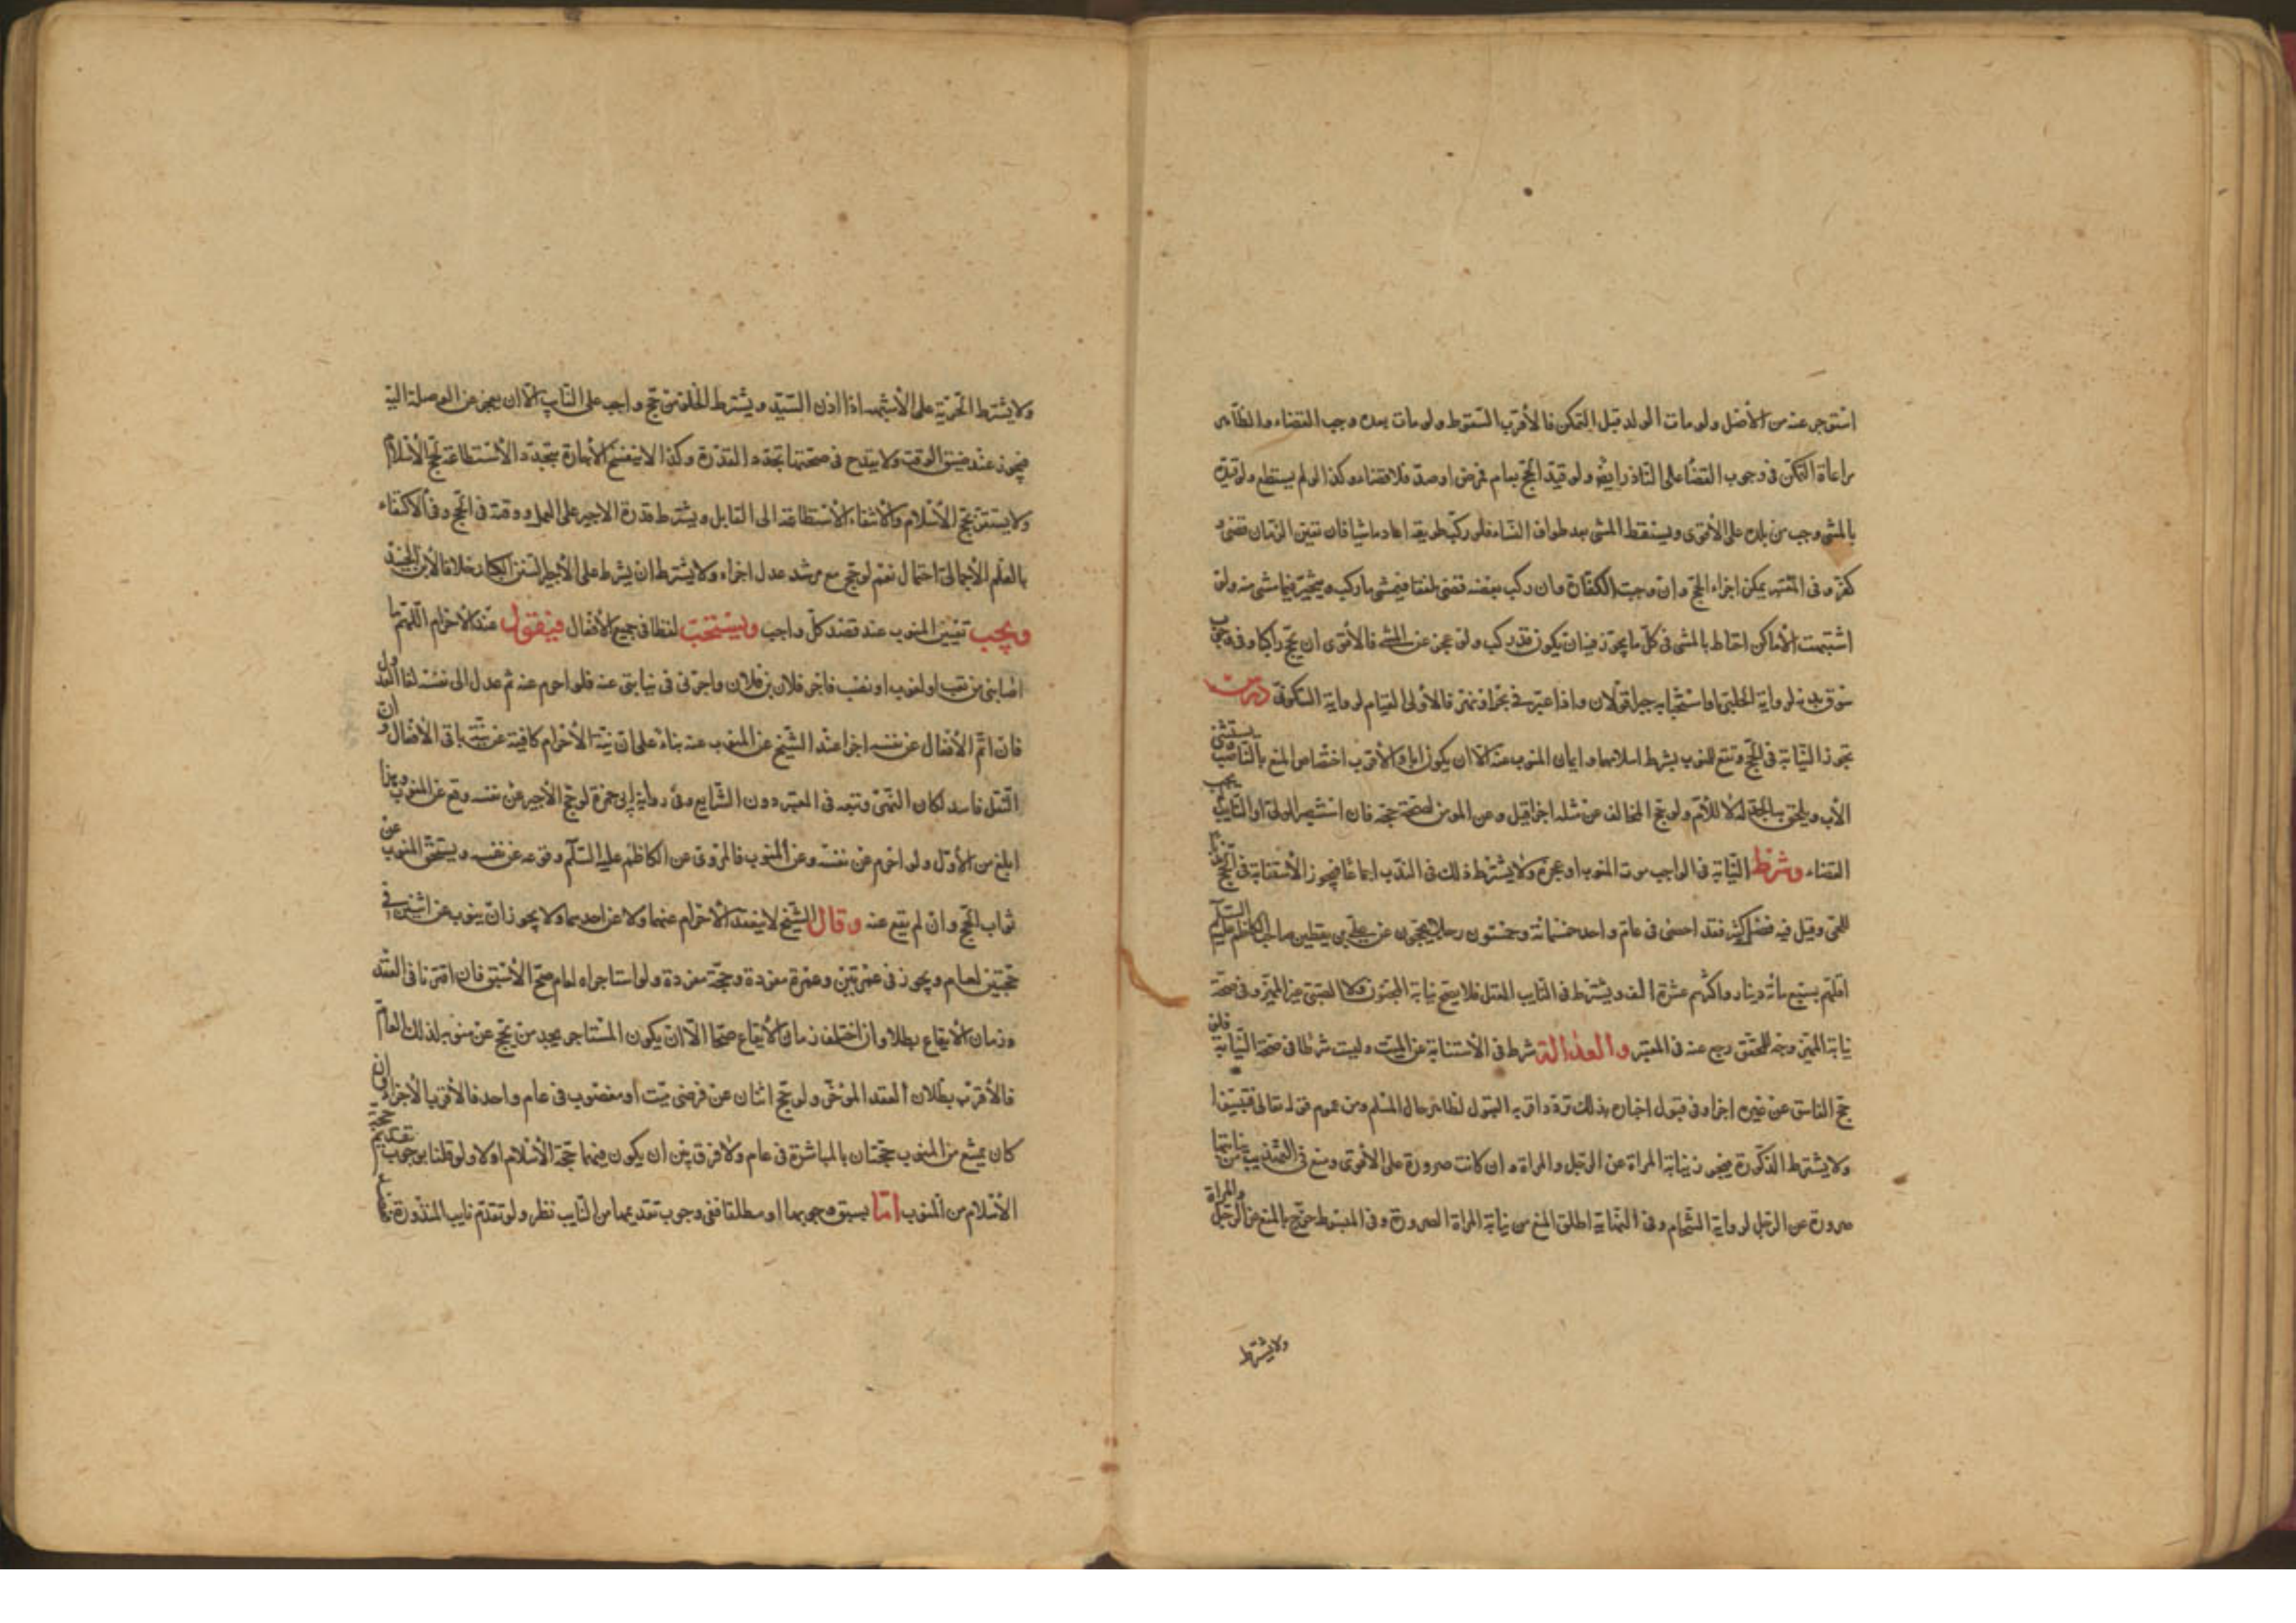 استوجر عنه من الأصل ولو مات الولد قبل التمكن فالأقرب السقوط ولو مات بعده وجب القضاء والظاهر
مراعاة التمكن في وجوب القضاء على الناذر ايضا ولو قيد الحج بعام فمرض او صد فلا قضاء وكذا لو لم يستطع ولو قيده
بالمشي وجب من بلده على الأقوى ويسقط المشي بعد طواف النساء فلو ركب طريقه اعاد ماشيا فان تعين الزمان قضى و
كفر وفي المعتبر يمكن اجزاء الحج وان وجبت الكفارة وان ركب بعضه قضى ملفقا فيمشي ما ركب ويتخير فيما مشى منه ولو
اشتبهت الأماكن احتاط بالمشي في كل ما يجوز فيه ان يكون قد ركب ولو عجز عن المشي فالأقوى ان يحج راكبا وفي وجوب
سوق بدنة لرواية الحلبي او استحبابه جبرا قولان واذا عبر في بحر او نهر فالأولى القيام لرواية السكوني درس
تجوز النيابة في الحج وتقع للمنوب بشرط اسلامهما وايمان المنوب عنه الا ان يكون ابا والأقرب اختصاص المنع بالناصب ويستثنى
الأب ويلحق به الجد له لا للأم ولو حج المخالف عن مثله اجزا قيل وعن المومن لصحة حجه فان استبصر الولي او النائب يجب
القضاء وشرط النيابة في الواجب موت المنوب او عجزه ولا يشترط ذلك في الندب اجماعا فيجوز الأستنابة في الحج ندبا
للحي وقيل فيه فضل كثير فقد احصى في عام واحد خمسمائة وخمسون رجلا يحجون عن علي بن يقطين صاحب الكاظم عليه السلم
اقلهم بسبع مائة دينار واكثرهم عشرة الف ويشترط في النايب العقل فلا يصح نيابة المجنون ولا الصبي غير المميز وفي صحة
نيابة المميز وجه للمحقق رجع عنه في المعتبر والعدالة شرط في الأستنابة عن الميت وليست شرطا في صحة النيابة فلو
حج الفاسق عن غيره اجزا وفي قبول اخباره بذلك تردد اقربه القبول لظاهر حال المسلم ومن عموم قوله تعالى فتبينوا
ولا يشترط الذكورة فيجوز نيابة المراة عن الرجل والمراة وان كانت صرورة على الأقوى ومنع في التهذيب من نيابتها
صرورة عن الرجل لرواية الشحام وفي النهاية اطلق المنع من نيابة المراة الصرورة وفي المبسوط صرح بالمنع عن الرجل والمراة
ولا يشترط
ولا يشترط الحرية على الأشبه اذا اذن السيد ويشترط الخلو من حج واجب على النايب الا ان يعجز عن الوصلة اليه
فيجوز عند ضيق الوقت ولا يقدح في صحتها تجدد القدرة وكذا لا ينفسخ الأجارة بتجدد الأستطاعة لحج الأسلام
ولا يستقر حج الأسلام والأ بقاء الأستطاعة الى القابل ويشترط قدرة الاجير على العمل وفقهه في الحج وفي الاكتفاء
بالعلم الأجمالي احتمال نعم لو حج مع مرشد عدل اجزاء ولا يشترط ان يشرط على الأجير السنن الكبار خلافا لابن الجنيد
ويجب تعيين المنوب عند قصد كل واجب ويستحب لفظا في جميع الأفعال فيقول عند الأحرام اللهم ما
اصابني من تعب او لغوب او نصب فاجر فلان بن فلان واجرني في نيابتي عنه فلو احرم عنه ثم عدل الى نفسه لغا العدول
فان اتم الأفعال عن نفسه اجزا عند الشيخ عن المنوب عنه بناء على ان نية الأحرام كافية عن نية باقي الأفعال وان
النقل فاسد لمكان النهي وتبعه في المعتبر دون الشرايع وفي رواية ابي حمزة لو حج الأجير عن نفسه وقع عن المنوب وهذا
ابلغ من الأول ولو احرم عن نفسه وعن المنوب فالمروي عن الكاظم عليه السلم وقوعه عن نفسه ويستحق المنوب عن
ثواب الحج وان لم يقع عنه وقال الشيخ لا ينعقد الأحرام عنهما ولا عن احدهما ولا يجوز ان ينوب عن اثنين في
حجتين لعام ويجوز في عمرتين وعمرة مفردة وحجة مفردة ولو استاجراه لعام صح الأسبق فان اقترنا في العقد
وزمان الأيقاع بطلا وان اختلف زمان الأيقاع صحا الا ان يكون المستاجر يجد من يحج عن منوبه لذلك العام
فالأقرب بطلان العقد المؤخر ولو حج اثنان عن فرضى ميت او معضوب في عام واحد فالأقرب الأجزاء وان
كان يمتنع من المنوب حجتان بالمباشرة في عام ولا فرق بين ان يكون فيهما حجة الأسلام اولا ولو قلنا بوجوب تقديم حجة
الأسلام من المنوب اما بسبق وجوبها او مطلقا ففي وجوب تقديمها من النايب نظر ولو تقدم نايب المنذورة